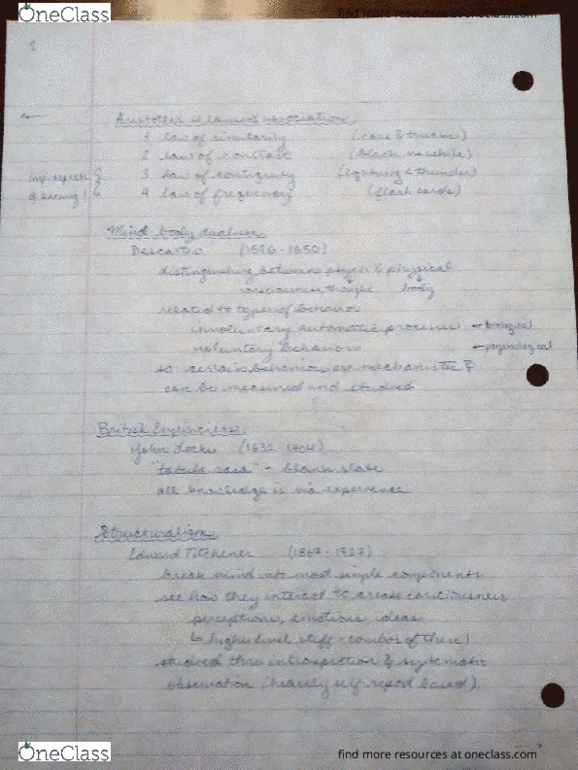 OneClass
find more resources at oneclass.com
Aristotle's laws of association
1 law of similarity (cars & trucks)
2 law of contrast (black vs white)
3 law of contiguity (lightning & thunder)
4 law of frequency (flash cards)
imp. aspects
of learning!
Mind-body dualism
Descartes (1596-1650)
distinguishing between psych & physical
consciousness thought body
related to types of behavior
involuntary automatic processes ← biological
voluntary behaviors ← psychological
so certain behaviors are mechanistic &
can be measured and studied
British Empiricism
John Locke (1632-1704)
"tabula rasa" - blank slate
all knowledge is via experience
Structuralism
Edward Titchener (1867-1927)
break mind into most simple components
see how they interact to create consciousness
perceptions, emotions, ideas
↳ higher level stuff = combos of these!
studied thru introspection & systematic
observation (heavily self report based)
OneClass
find more resources at oneclass.com